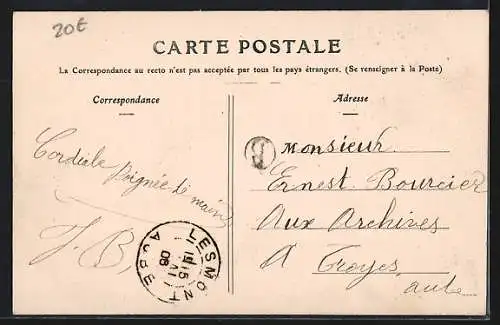 20€
CARTE POSTALE
La Correspondance au recto n'est pas acceptée par tous les pays étrangers. (Se renseigner à la Poste)
Correspondance
Cordiale Poignée de main
J. B.
Adresse
Monsieur
Ernest Bourcier
Aux Archives
A Troyes
Aube
LESMONT
15
08
AUBE